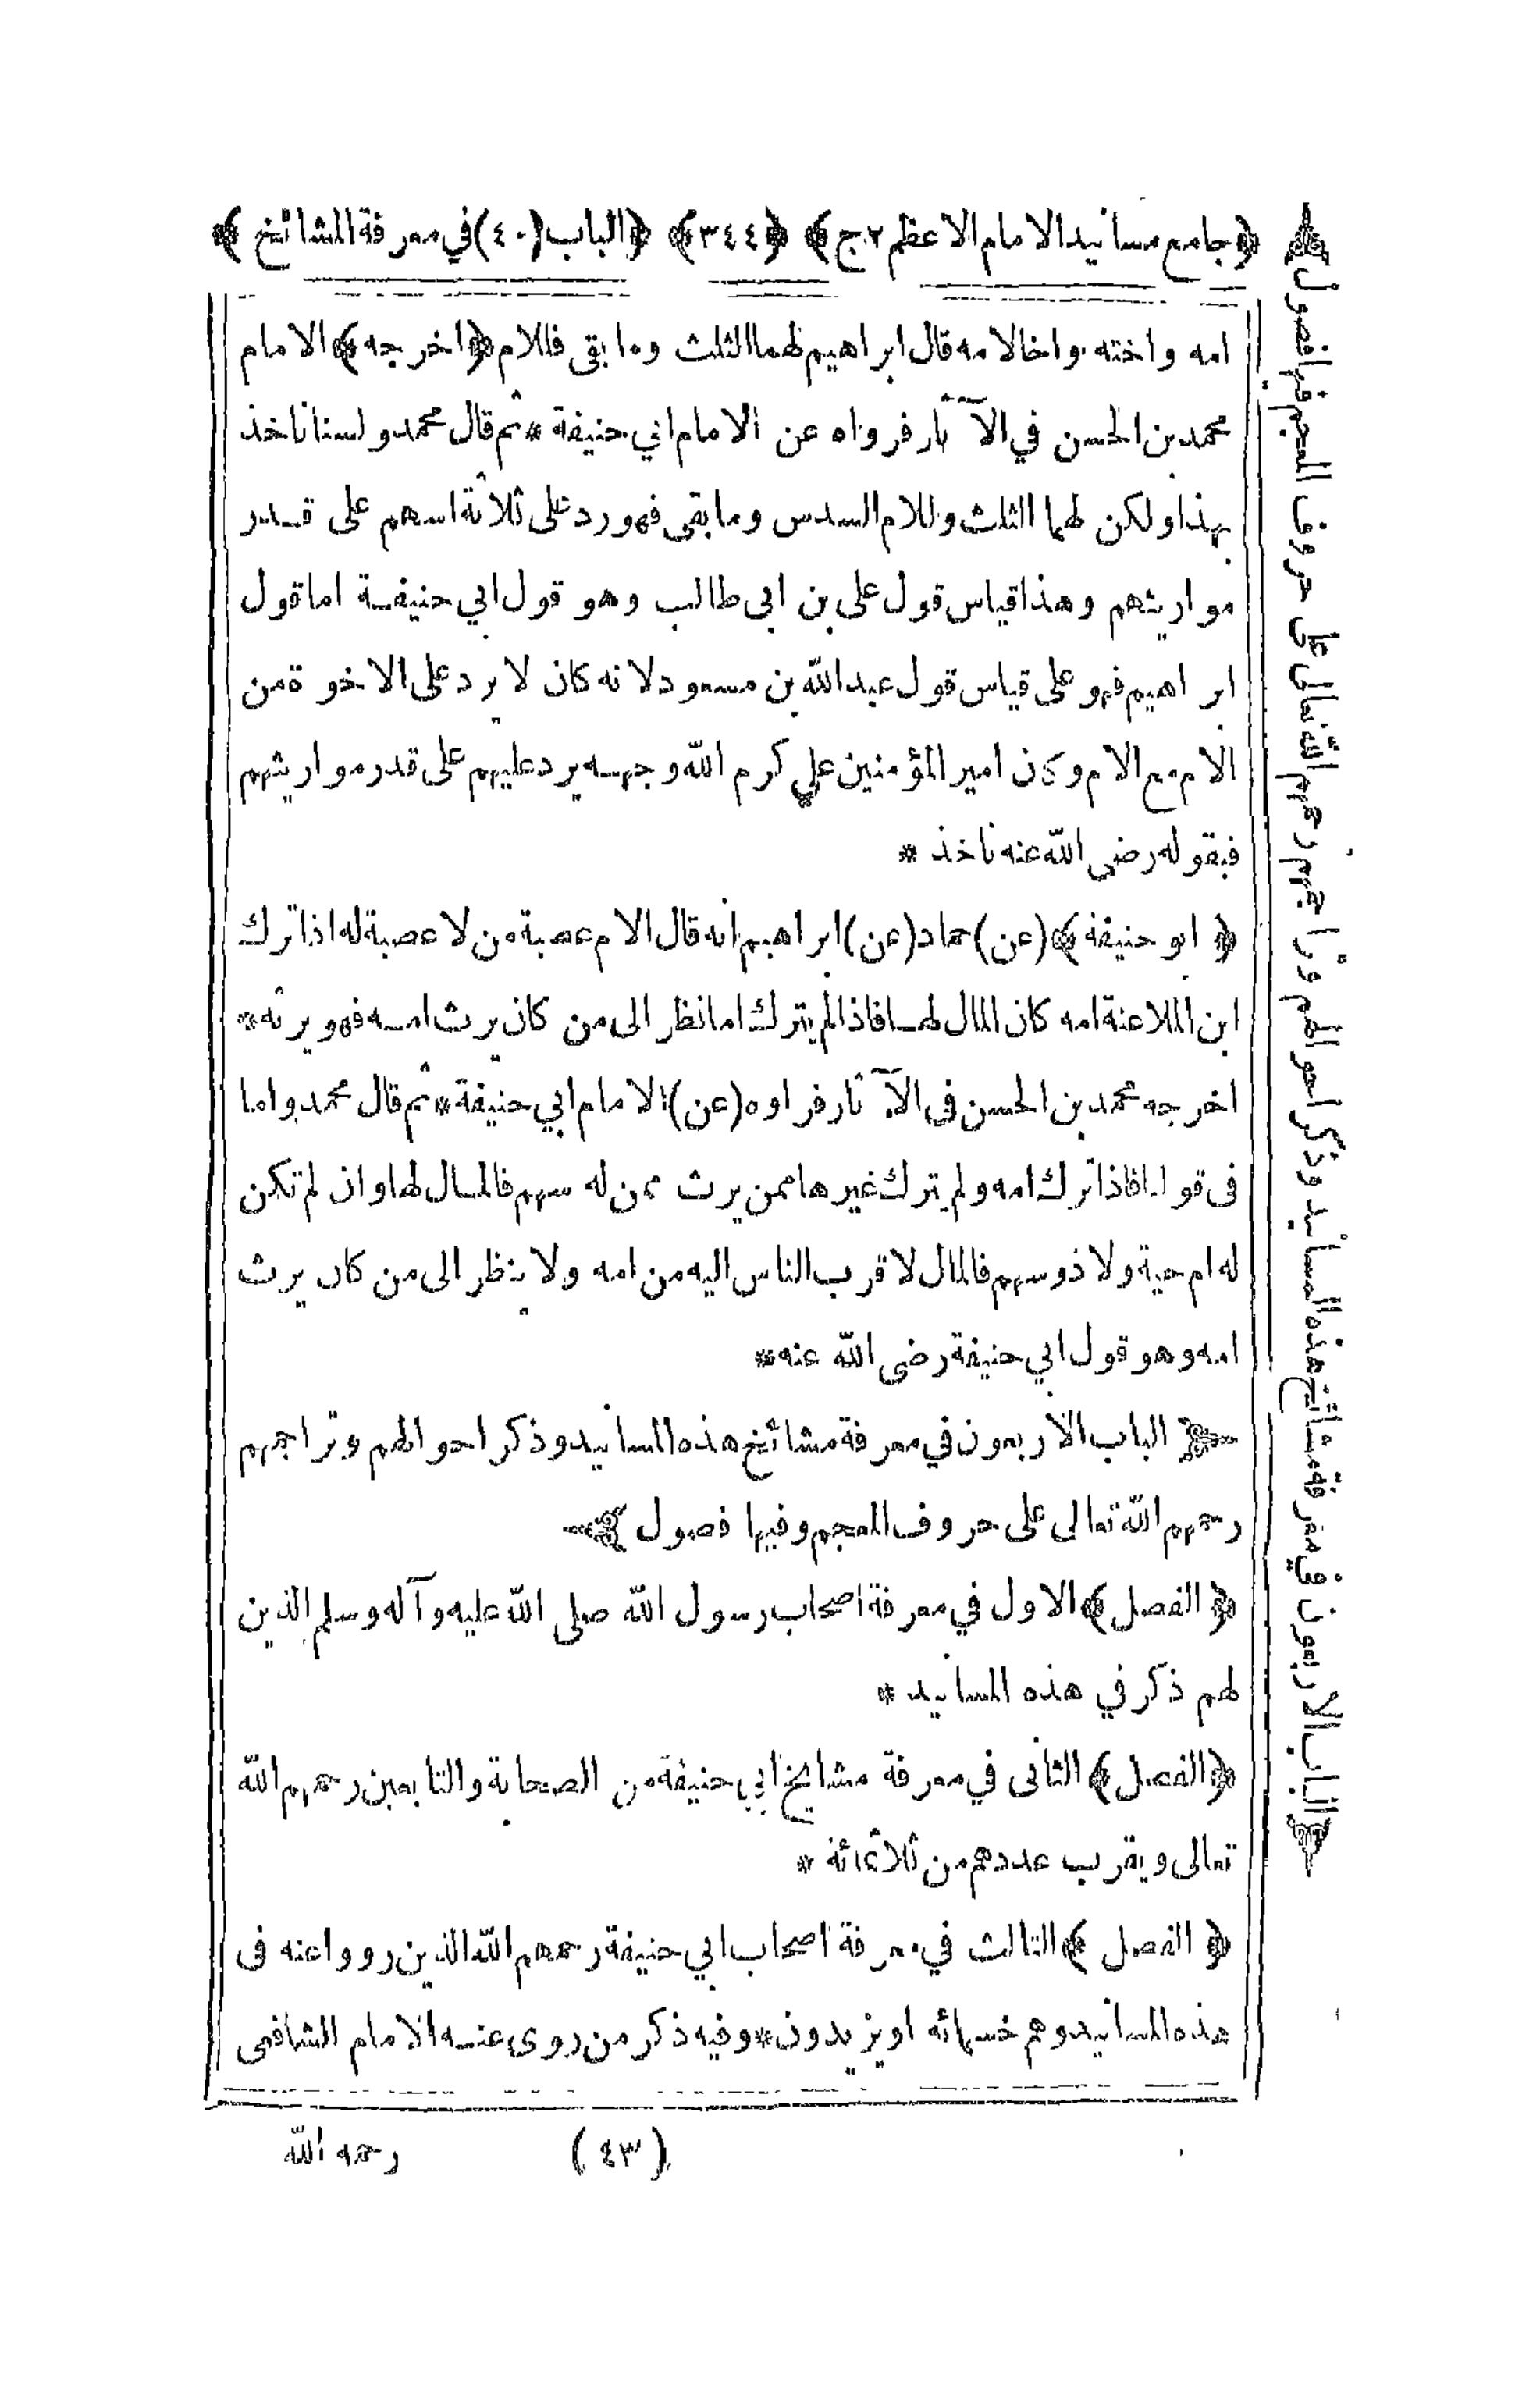 ﴿جامع مسانيد الامام الاعظم ٢ج﴾ ﴿٣٤٤﴾ ﴿الباب (٤٠) في معرفة المشائخ﴾
امه واخته واخا لامه قال ابراهيم لهما الثلث وما بقى فللام ﴿اخرجه﴾ الامام
محمد بن الحسن في الآثار فرواه عن الامام ابي حنيفة * ثم قال محمد ولسنا ناخذ
بهذا ولكن لهما الثلث وللام السدس وما بقى فهو رد على ثلاثة اسهم على قدر
مواريثهم وهذا قياس قول على بن ابى طالب وهو قول ابي حنيفة اما قول
ابراهيم فهو على قياس قول عبد الله بن مسعود لانه كان لا يرد على الاخوة من
الام مع الام وكان امير المؤمنين علي كرم الله وجهه يرد عليهم على قدر مواريثهم
فبقوله رضى الله عنه ناخذ *
﴿ابو حنيفة﴾ (عن) حماد (عن) ابراهيم انه قال الام عصبة من لا عصبة له اذا ترك
ابن الملاعنة امه كان المال لها فاذا لم يترك اما نظر الى من كان يرث امه فهو يرثه *
اخرجه محمد بن الحسن فى الآثار فراوه (عن) الامام ابي حنيفة * ثم قال محمد واما
فى قولنا فاذا ترك امه ولم يترك غيرها ممن يرث ممن له سهم فالمال لها وان لم تكن
له ام حية ولا ذو سهم فالمال لاقرب الناس اليه من امه ولا ينظر الى من كان يرث
امه وهو قول ابي حنيفة رضى الله عنه *
الباب الاربعون في معرفة مشائخ هذه المسانيد وذكر احوالهم وتراجمهم
رحمهم الله تعالى على حروف المعجم وفيها فصول
﴿الفصل﴾ الاول في معرفة اصحاب رسول الله صلى الله عليه وآله وسلم الذين
لهم ذكر في هذه المسانيد *
﴿الفصل﴾ الثانى في معرفة مشايخ ابي حنيفة من الصحابة والتابعين رحمهم الله
تعالى ويقرب عددهم من ثلاثمائة *
﴿الفصل﴾ الثالث في معرفة اصحاب ابي حنيفة رحمهم الله الذين رووا عنه فى
هذه المسانيد وهم خمسمائه او يزيدون * وفيه ذكر من روى عنه الامام الشافعى
(٤٣) رحمه الله
الباب الاربعون في معرفة مشائخ هذه المسانيد وذكر احوالهم وتراجمهم رحمهم الله تعالى على حروف المعجم فيها فصول